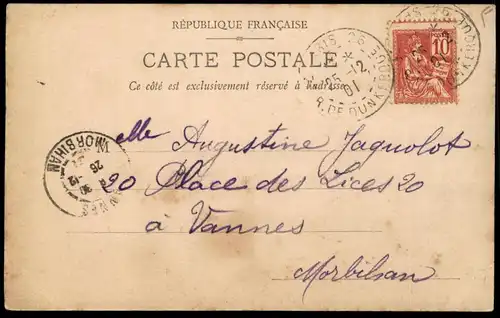 RÉPUBLIQUE FRANÇAISE
CARTE POSTALE
Ce côté est exclusivement réservé à l'adresse
PARIS 26
25 -12
01
R. DE DUNKERQUE
10
Mlle Augustine Jagnolot
20 Place des Lices 20
à Vannes
Morbihan
VANNES
MORBIHAN
26